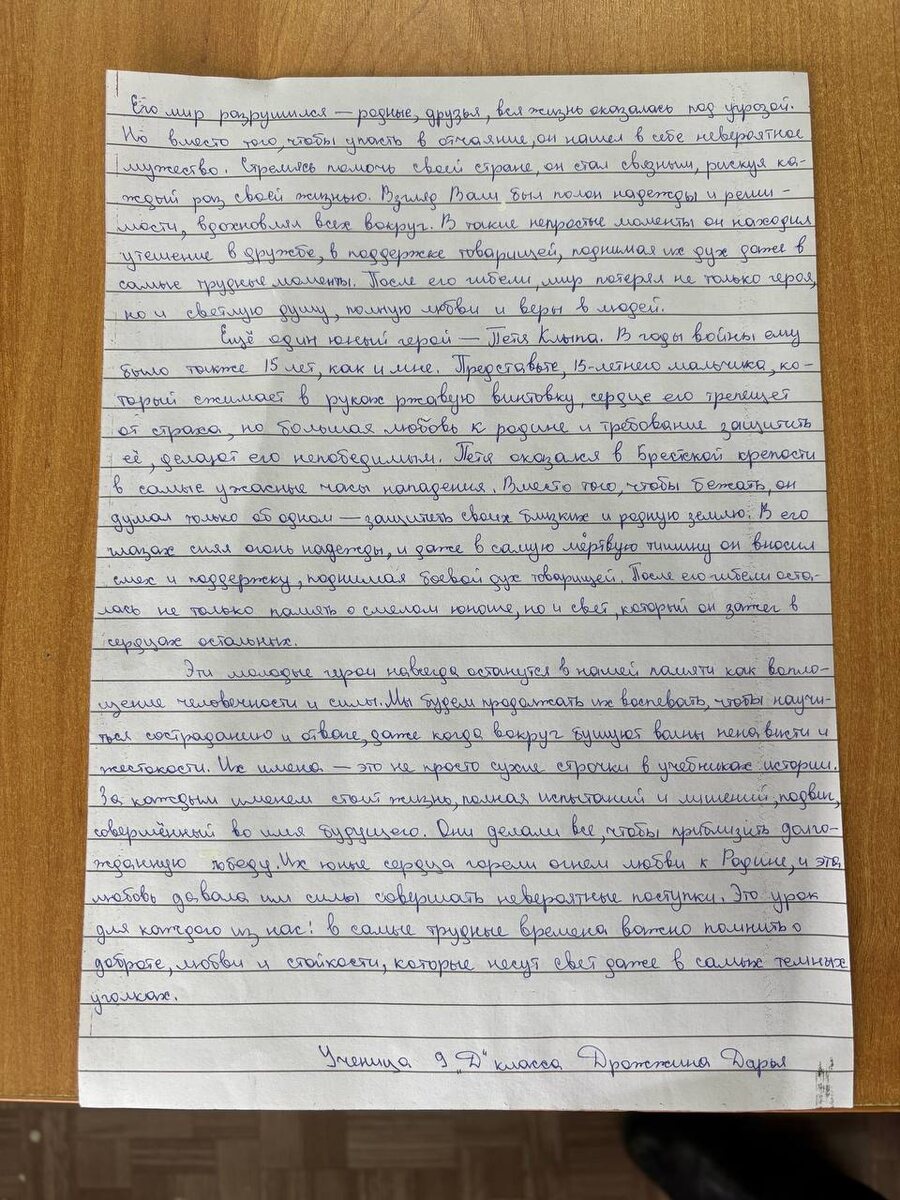 Его мир разрушился — родные, друзья, вся жизнь оказалась под угрозой.
Но вместо того, чтобы упасть в отчаяние, он нашел в себе невероятное
мужество. Стремясь помочь своей стране, он стал связным, рискуя ка-
ждый раз своей жизнью. Взгляд Вали был полон надежды и реши-
мости, вдохновлял всех вокруг. В такие непростые моменты он находил
утешение в дружбе, в поддержке товарищей, поднимая их дух даже в
самые трудные моменты. После его гибели, мир потерял не только героя,
но и светлую душу, полную любви и веры в людей.
Ещё один юный герой — Петя Клыпа. В годы войны ему
было также 15 лет, как и мне. Представьте, 15-летнего мальчика, ко-
торый сжимает в руках ржавую винтовку, сердце его трепещет
от страха, но большая любовь к родине и требование защитить
её, делают его непобедимым. Петя оказался в Брестской крепости
в самые ужасные часы нападения. Вместо того, чтобы бежать, он
думал только об одном — защитить своих близких и родную землю. В его
глазах сиял огонь надежды, и даже в самую мёртвую тишину он вносил
смех и поддержку, поднимая боевой дух товарищей. После его гибели оста-
лась не только память о смелом юноше, но и свет, который он зажег в
сердцах остальных.
Эти молодые герои навсегда останутся в нашей памяти как вопло-
щение человечности и силы. Мы будем продолжать их воспевать, чтобы научи-
ться состраданию и отваге, даже когда вокруг бушуют волны ненависти и
жестокости. Их имена — это не просто сухие строчки в учебниках истории.
За каждым именем стоит жизнь, полная испытаний и лишений, подвиг,
совершённый во имя будущего. Они делали все, чтобы приблизить долго-
жданную победу. Их юные сердца горели огнем любви к Родине, и эта
любовь давала им силы совершать невероятные поступки. Это урок
для каждого из нас: в самые трудные времена важно помнить о
доброте, любви и стойкости, которые несут свет даже в самых темных
уголках.
Ученица 9 „Д“ класса Дрожжина Дарья